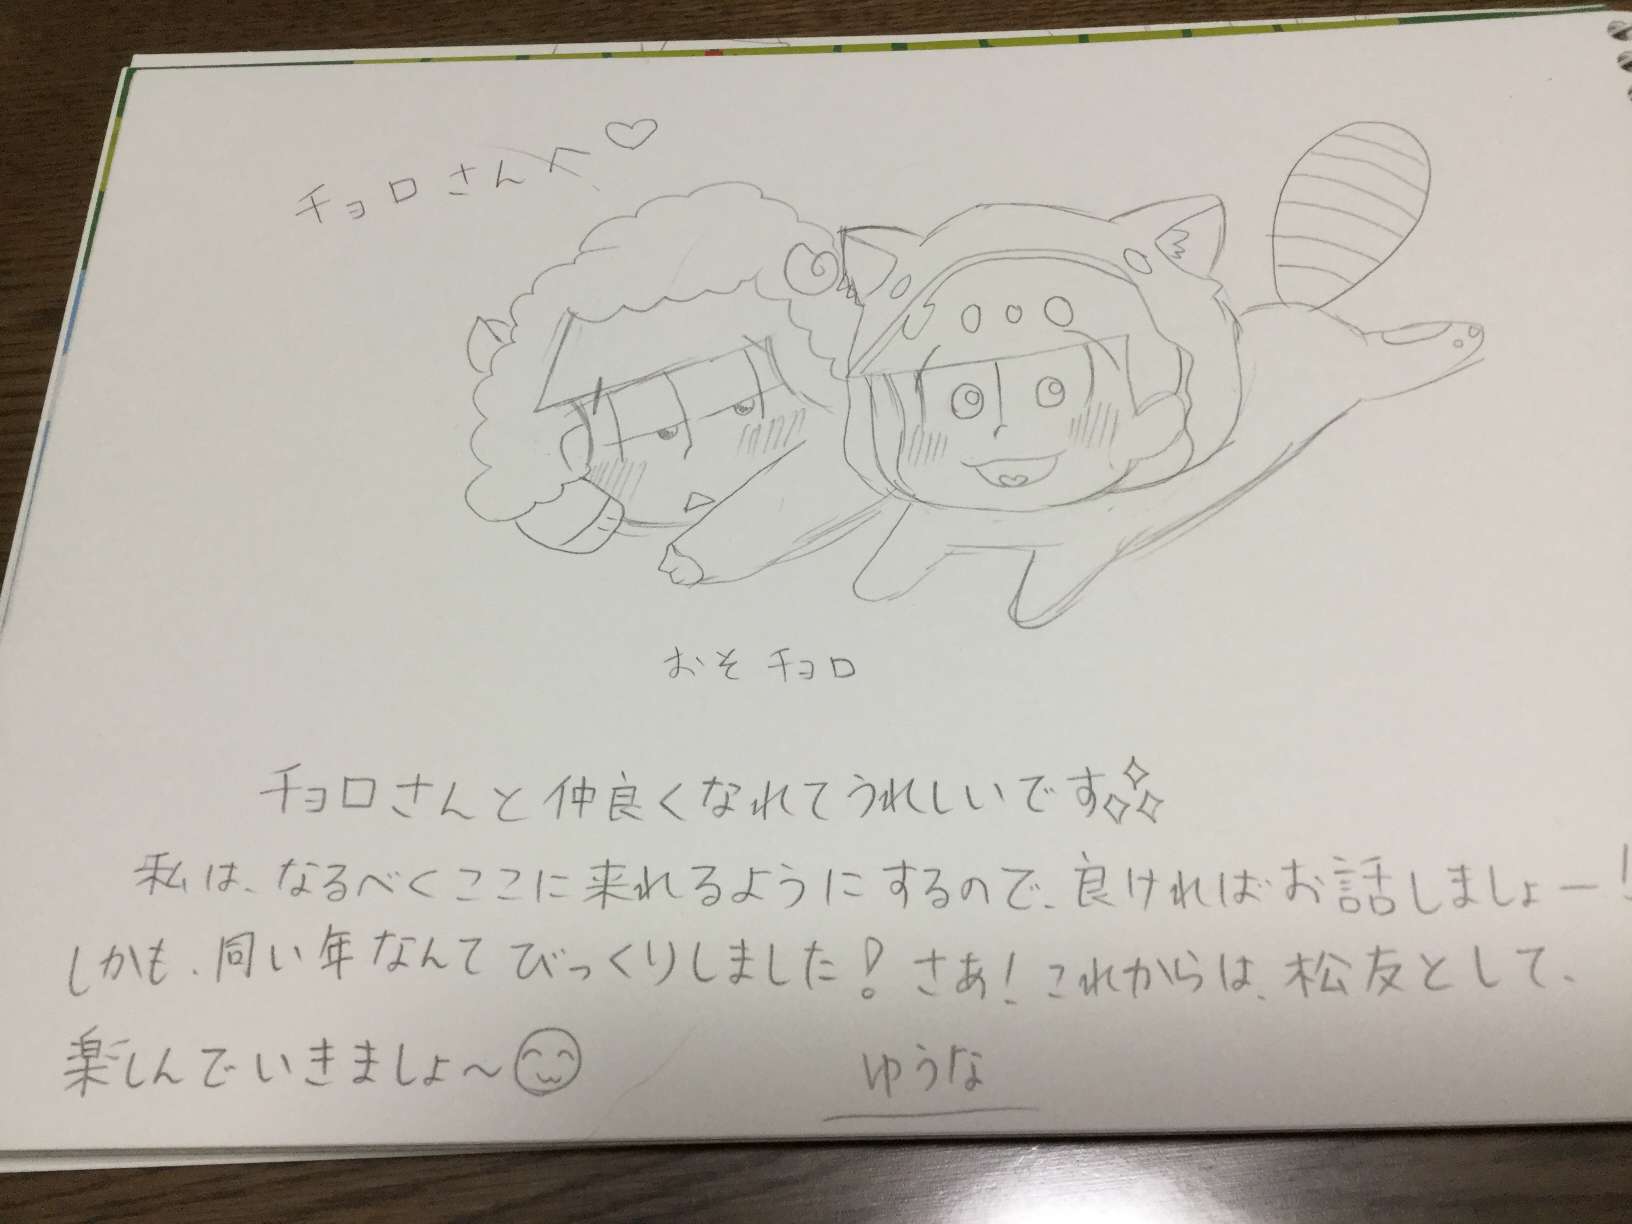 チョロさんへ♡
おそチョロ
チョロさんと仲良くなれてうれしいです
私は、なるべくここに来れるようにするので、良ければお話しましょー!
しかも、同い年なんてびっくりしました!さあ!これからは、松友として、
楽しんでいきましょ〜
ゆうな